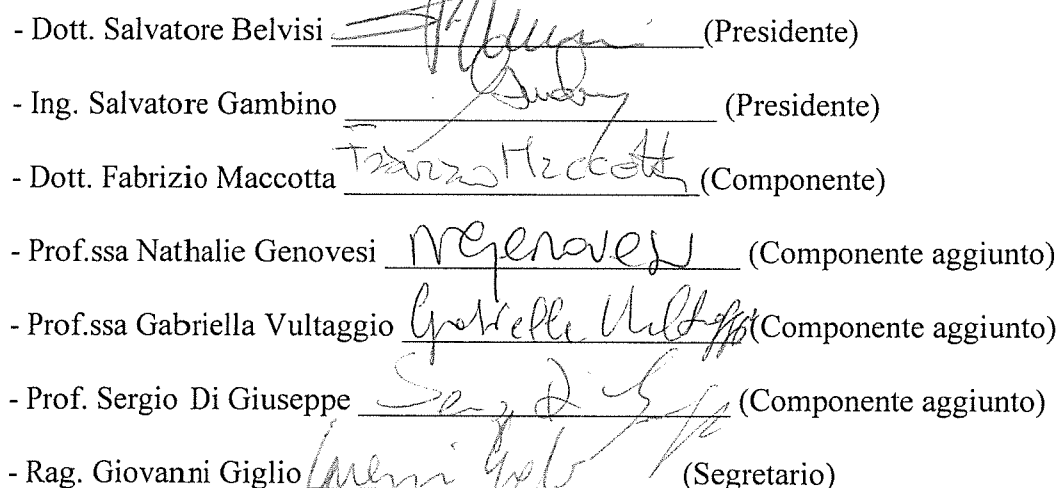 - Dott. Salvatore Belvisi (Presidente)
- Ing. Salvatore Gambino (Presidente)
- Dott. Fabrizio Maccotta Fabrizio Maccotta (Componente)
- Prof.ssa Nathalie Genovesi NGenovesi (Componente aggiunto)
- Prof.ssa Gabriella Vultaggio Gabriella Vultaggio (Componente aggiunto)
- Prof. Sergio Di Giuseppe (Componente aggiunto)
- Rag. Giovanni Giglio (Segretario)